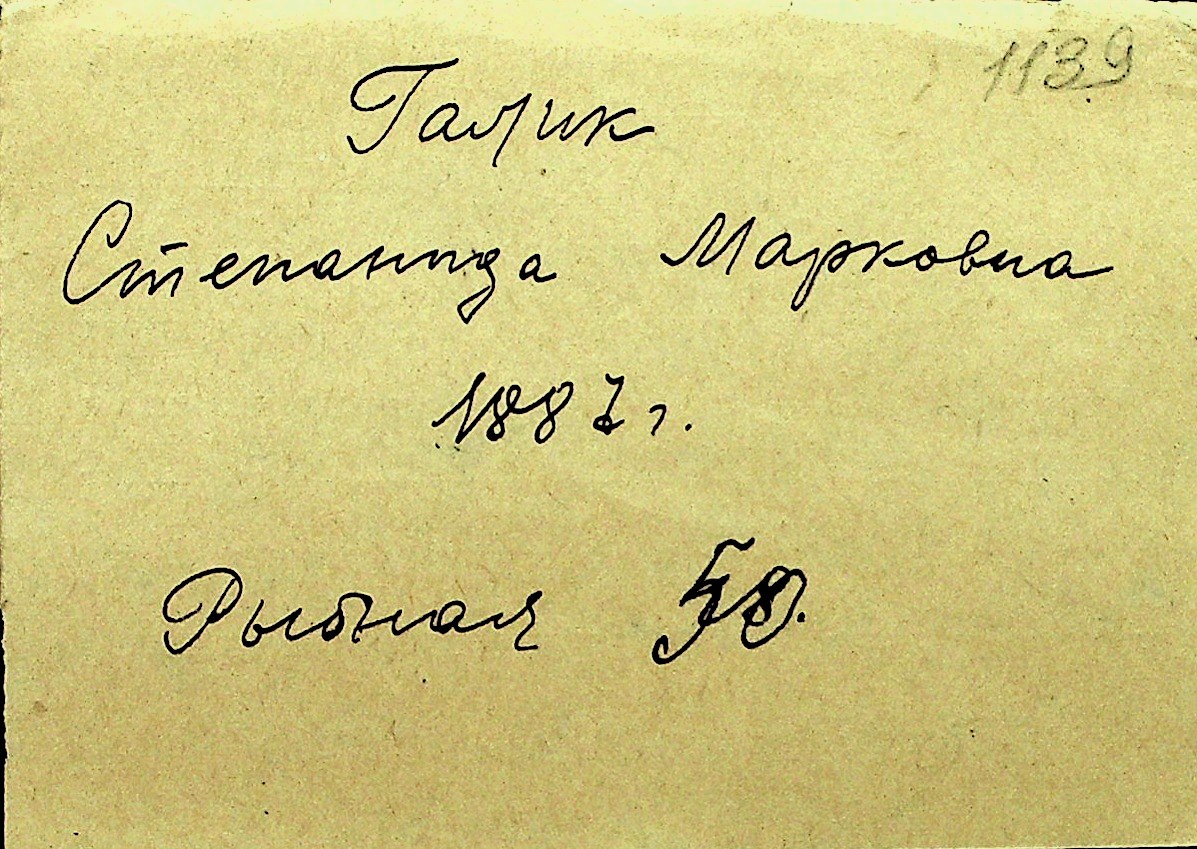 1139
Галик
Степанида Марковна
1887 г.
Рыбная 58.